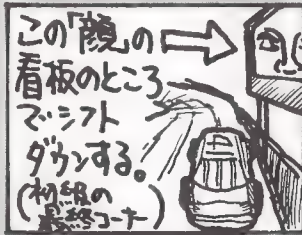 この「顔」の
看板のところ
でシフト
ダウンする。
(初級の
最終コーナー)